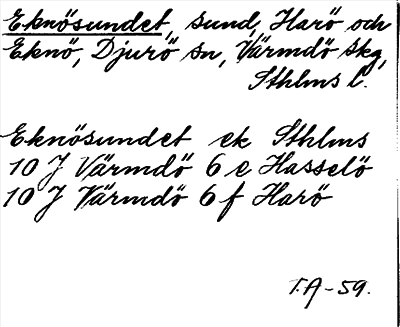 Eknösundet, sund, Harö och
Eknö, Djurö sn, Värmdö skg,
Sthlms l.
Eknösundet ek Sthlms
10 J Värmdö 6 e Hasselö
10 J Värmdö 6 f Harö
T.A-59.